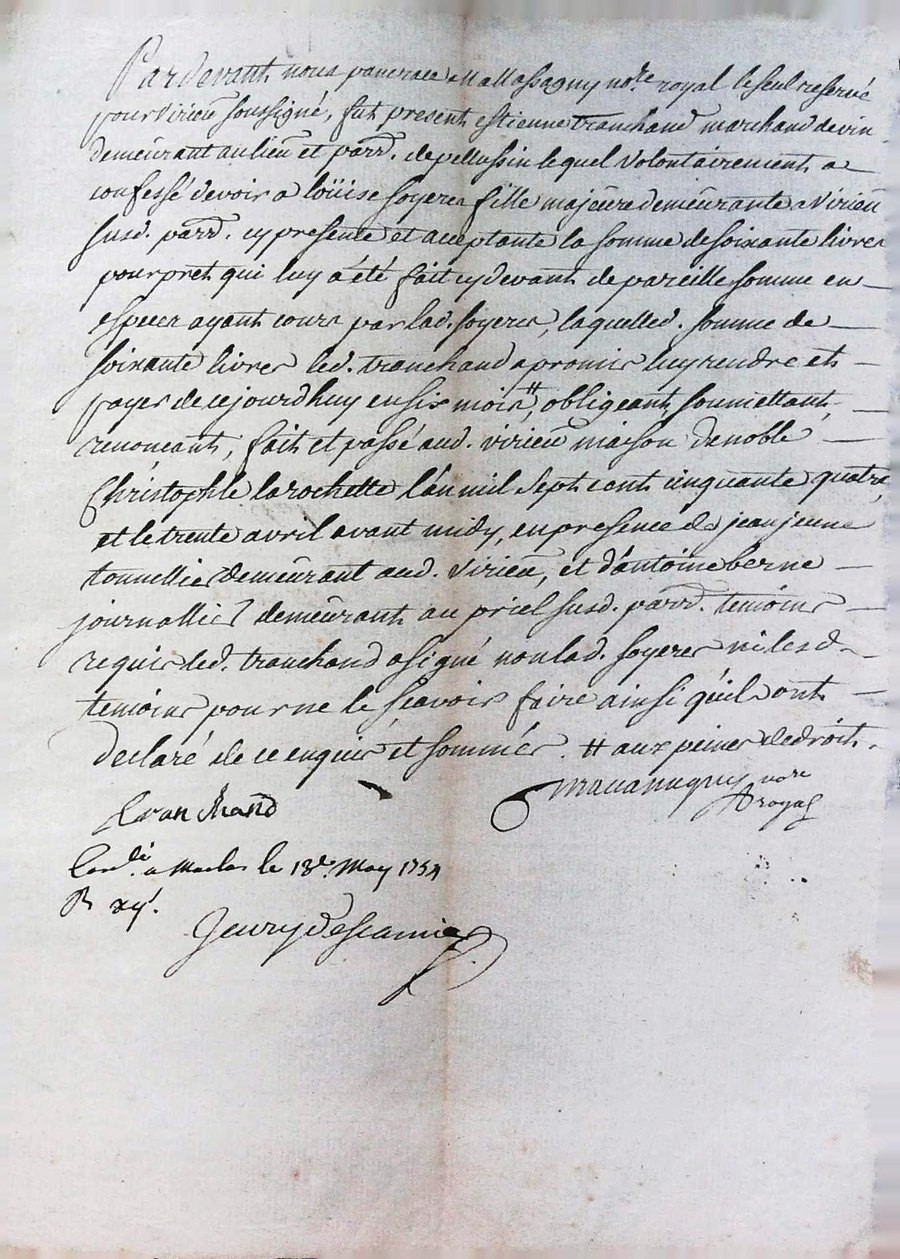 Pardevant nous pancrace Mallassagny no.re royal le seul reservé
pour Virieu soussigné, fut present estienne tranchand marchand de vin
demeurant au lieu et parr. de pellussin lequel volontairement a
confessé devoir a loüise soyeres fille majeure demeurante a Virieu
susd. parr. cy presente et aceptante la somme de soixante livres
pour pret qui luy a été fait cy devant de pareille somme en
especes ayant cours par lad. soyeres, laquelled. somme de
soixante livres led. tranchand a promis luy rendre et
payer de ce jourdhuy en six mois #, obligeant, soumettant,
renonceant, fait et passé aud. virieu maison de noble
Christophle larochette l'an mil sept cent cinquante quatre
et le trente avril avant midy, en presence de jean jeune
tonnellier demeurant aud. Virieu, et d'antoine berne
journallier demeurant au priel susd. parr. temoins
requis led. tranchand a signé non lad. soyeres ni lesd.
temoins pour ne le sçavoir faire ainsi qu'ils ont
declaré de ce enquis et sommés. # aux peines de droit.
tranchand
no.re royal
Con.lé a Maclas le 18e. May 1754
R xy s.